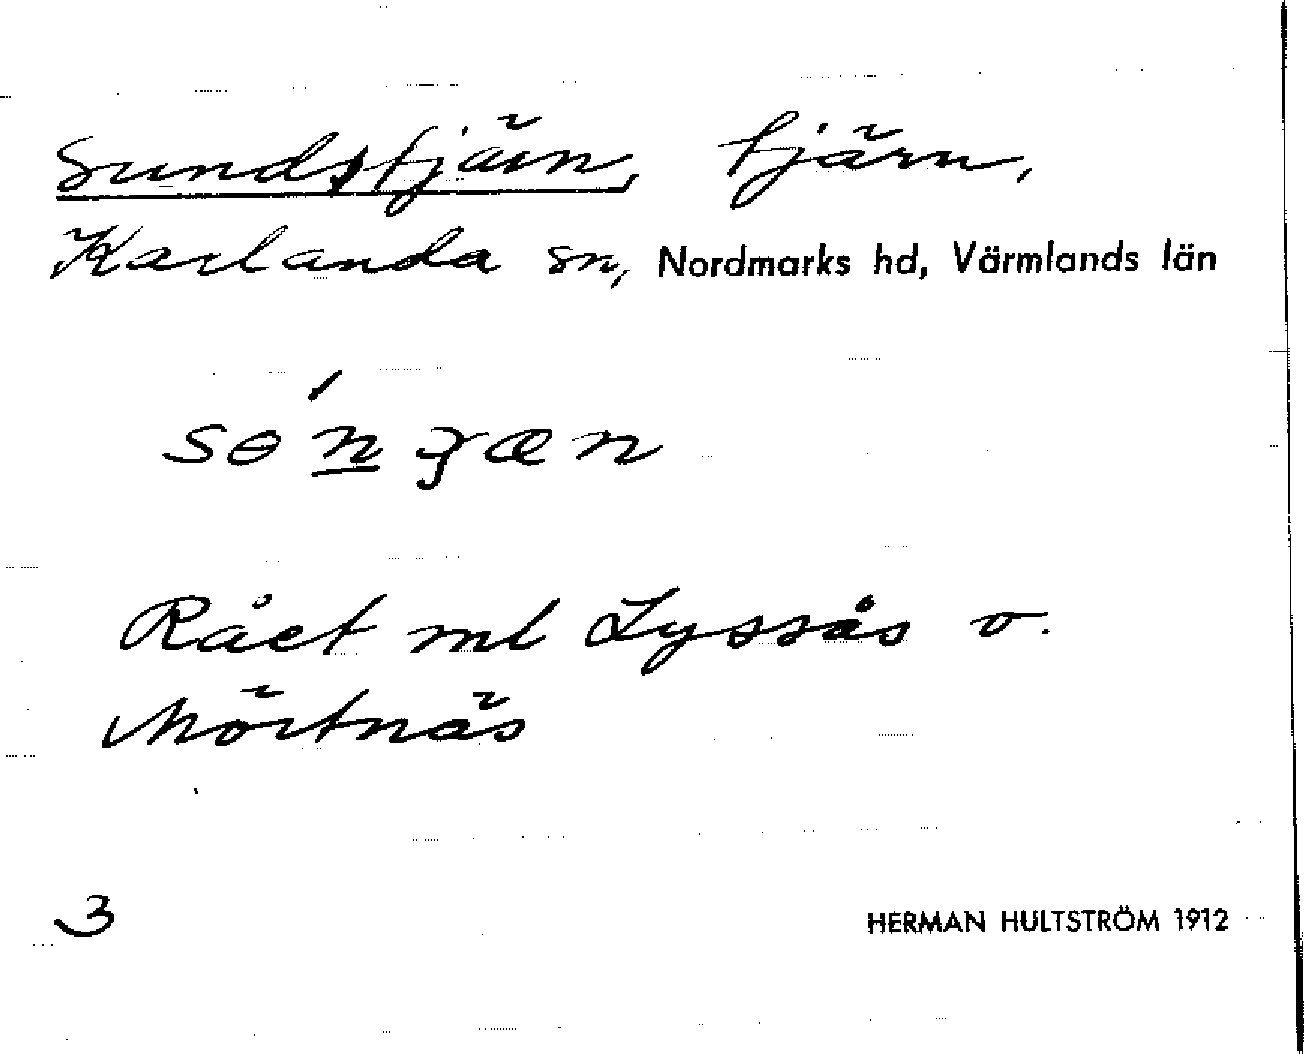 Sundstjärn, tjärn,
Karlanda sn, Nordmarks hd, Värmlands län
Rået ml Lyssås o.
Mörtnäs
3
HERMAN HULTSTRÖM 1912